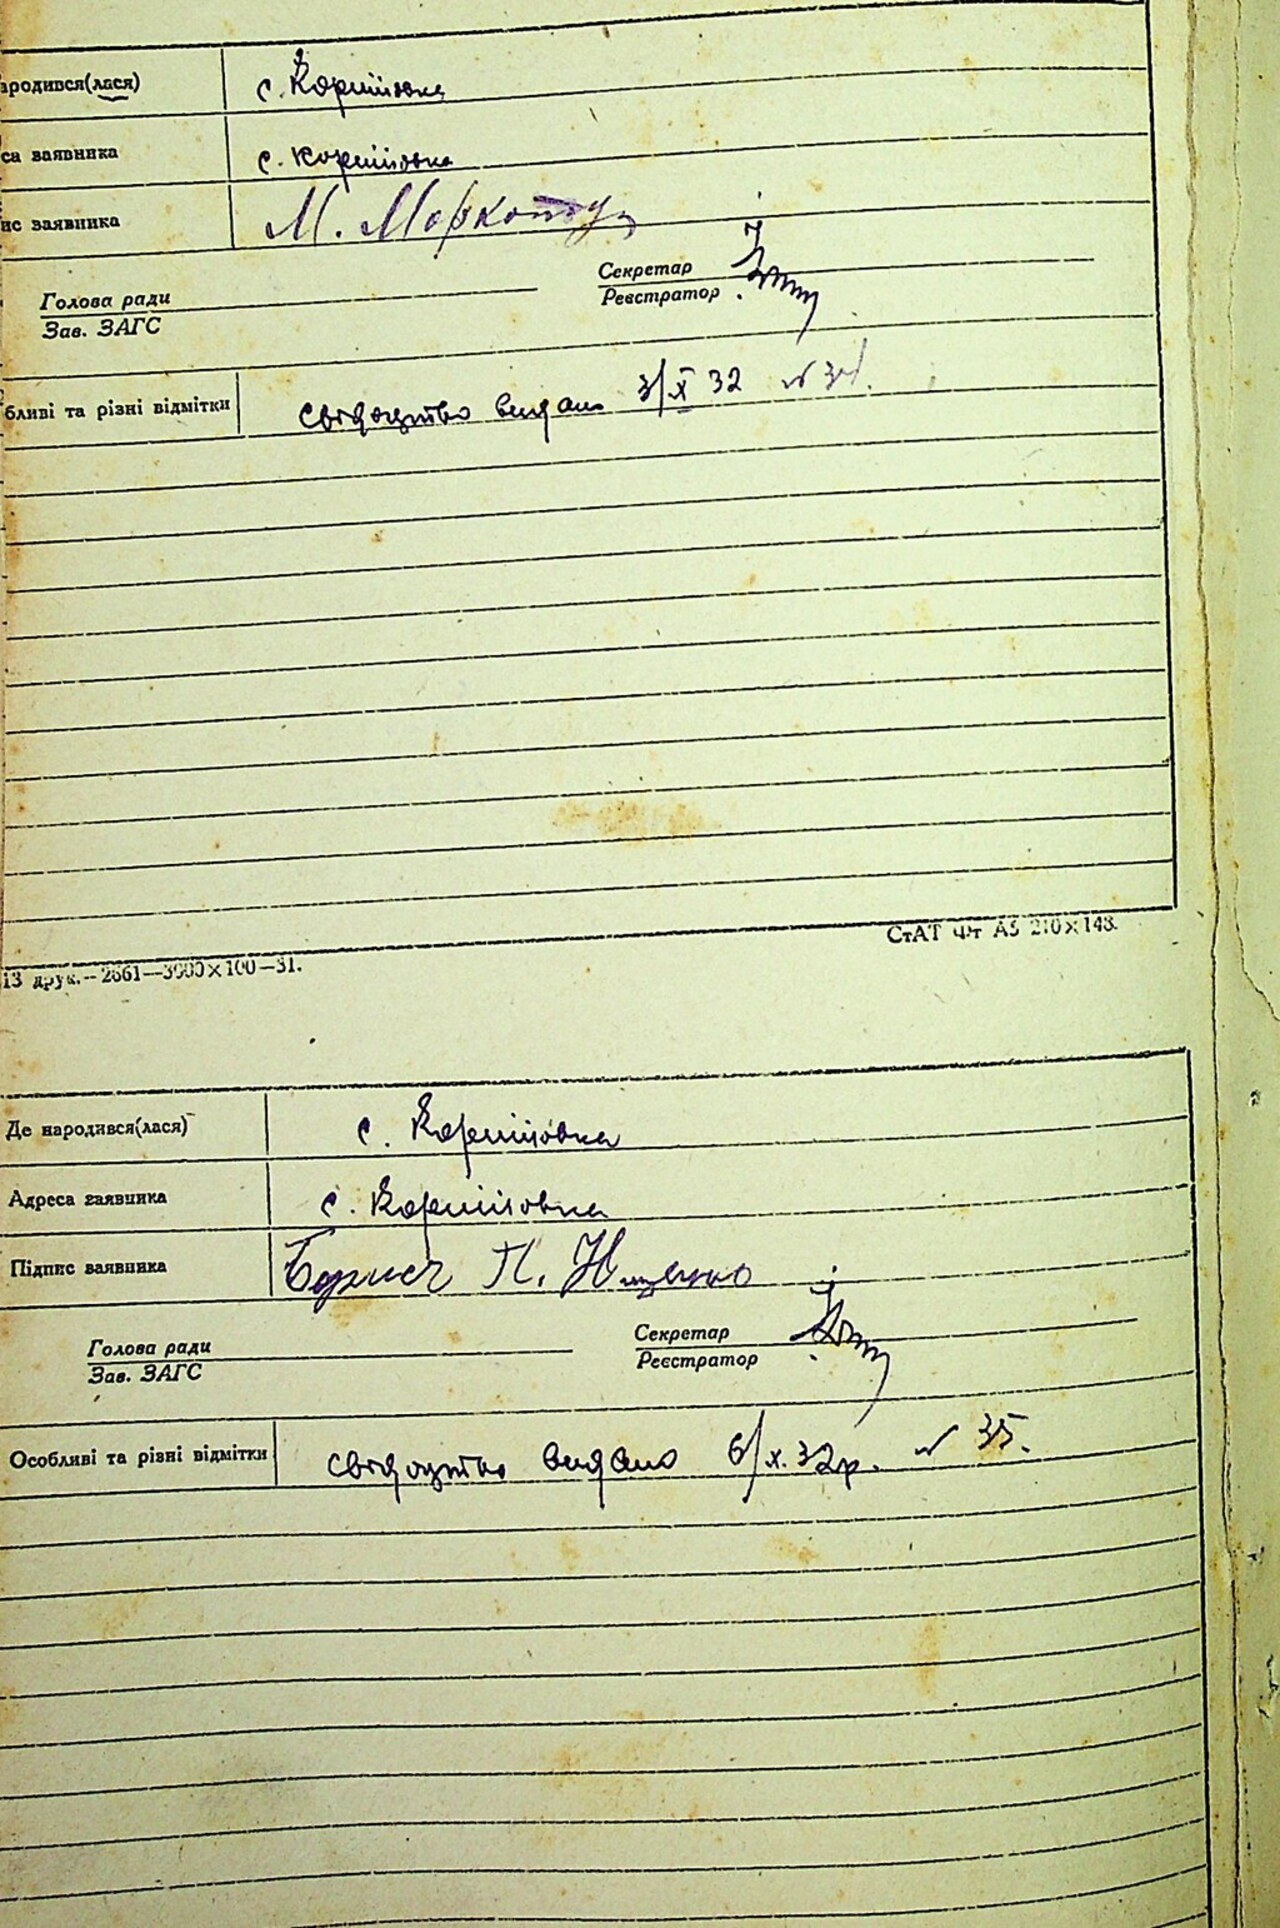 ародився(лася) с. Корніївка
са заявника с. Корніївка
ис заявника М.
Секретар
Голова ради Реєстратор
Зав. ЗАГС
бливі та різні відмітки свідоцтво видано 3/X 32 № 34.
СтАТ Фт А5 210×148.
13 друк.—2661—3000×100—31.
Де народився(лася) с. Корніївка
Адреса заявника с. Корніївка
Підпис заявника П. Нищенко
Секретар
Голова ради Реєстратор
Зав. ЗАГС
Особливі та різні відмітки свідоцтво видано 6/х. 32р. № 35.